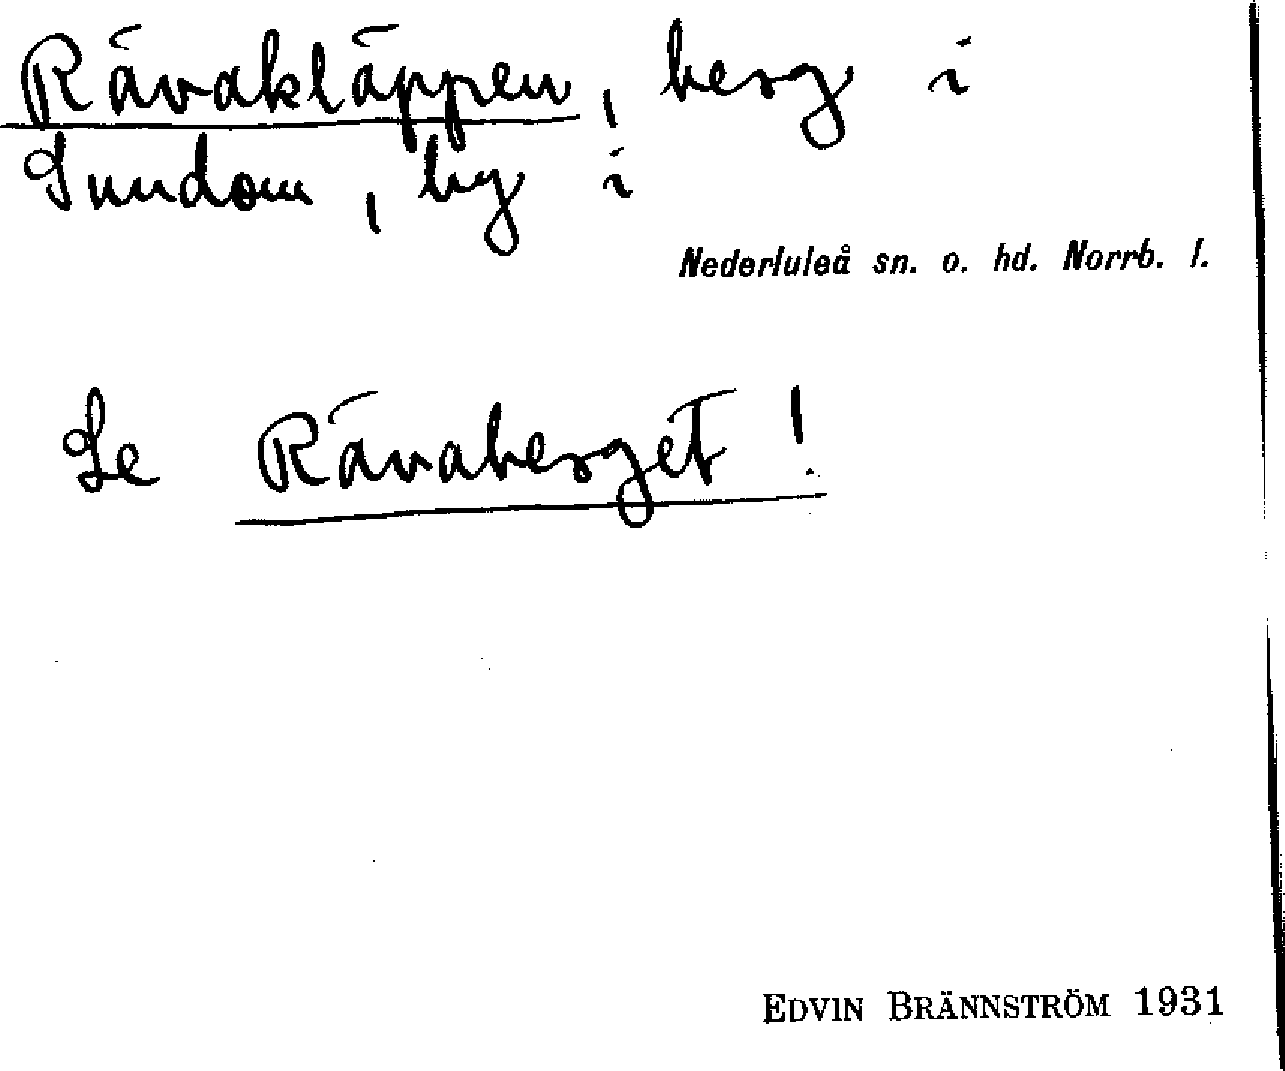 Rävakläppen, berg i
Sundom, by i
Nederluleå sn. o. hd. Norrb. l.
Se Rävaberget!
EDVIN BRÄNNSTRÖM 1931